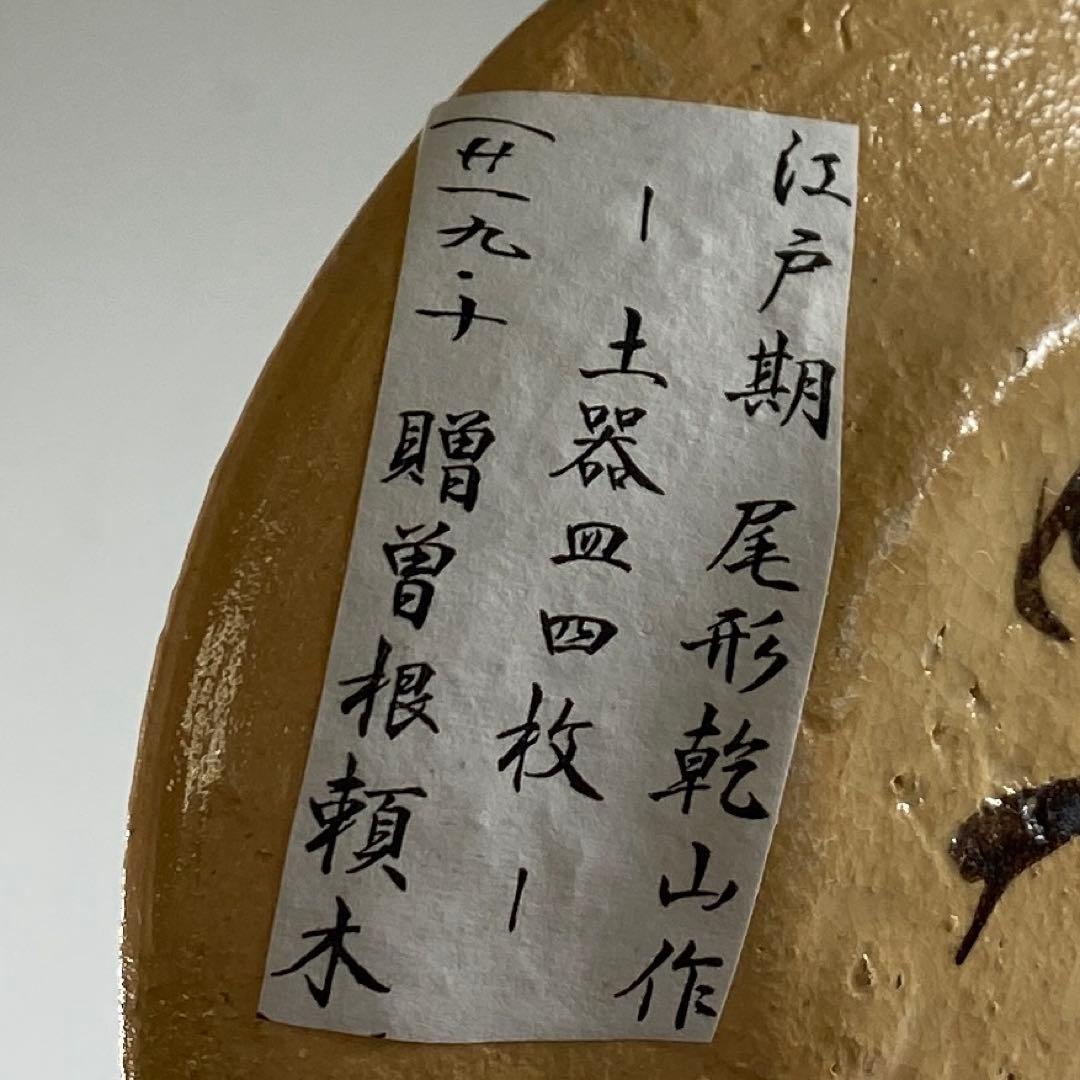 江戸期 尾形乾山作
ー土器皿四枚ー
(廿一九・十 贈曽根頼木